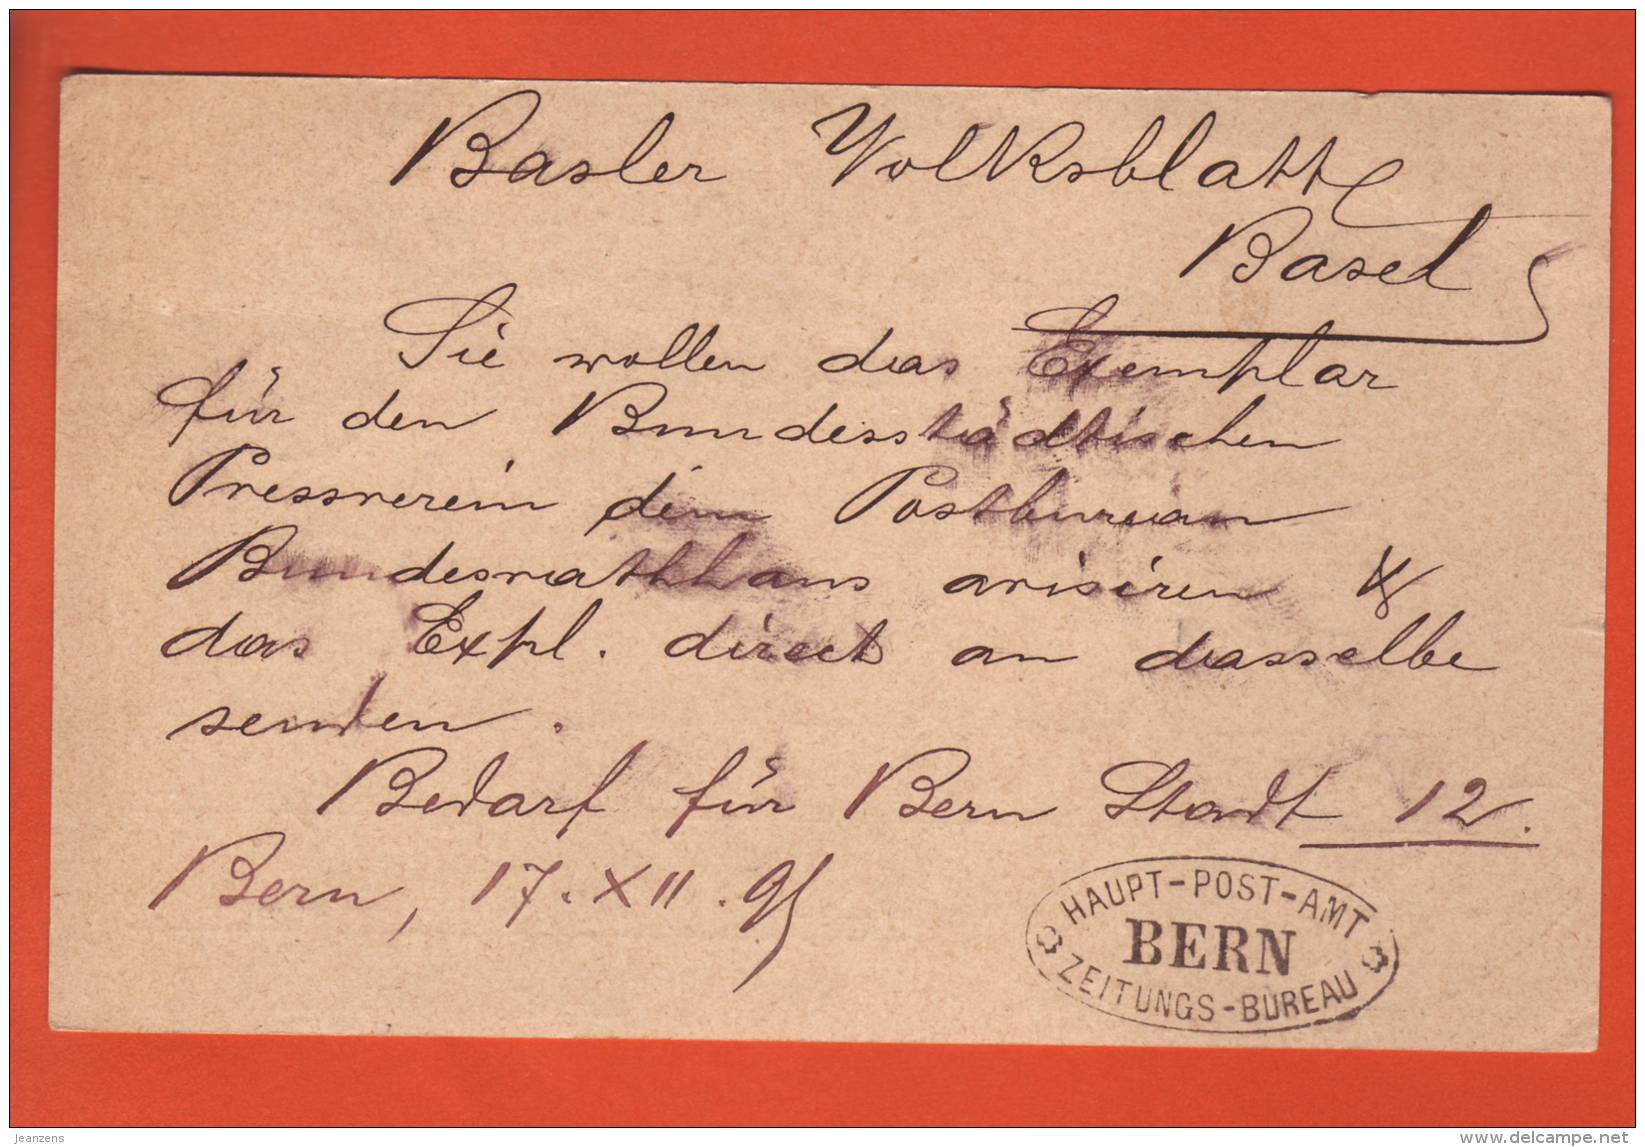 Basler Volksblatt
Basel
Sie wollen das Exemplar
für den Bundesstädtischen
Pressverein dem Postbureau
Bundesrathhaus avisiren &
das Expl. direct an dasselbe
senden.
Bedarf für Bern Stadt 12.
Bern, 17. XII. 95
HAUPT-POST-AMT
BERN
ZEITUNGS-BUREAU
jeanzens
delcampe.net